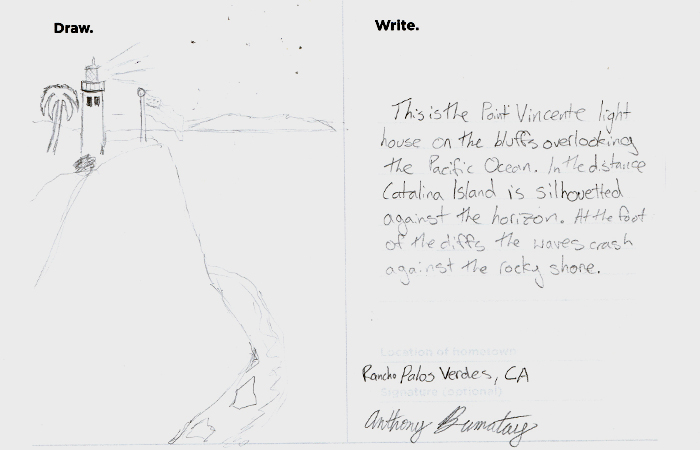 Draw.
Write.
This is the Point Vincente light
house on the bluffs overlooking
the Pacific Ocean. In the distance
Catalina Island is silhouetted
against the horizon. At the foot
of the cliffs the waves crash
against the rocky shore.
Location of hometown
Rancho Palos Verdes, CA
Signature (optional)
Anthony Bumatay